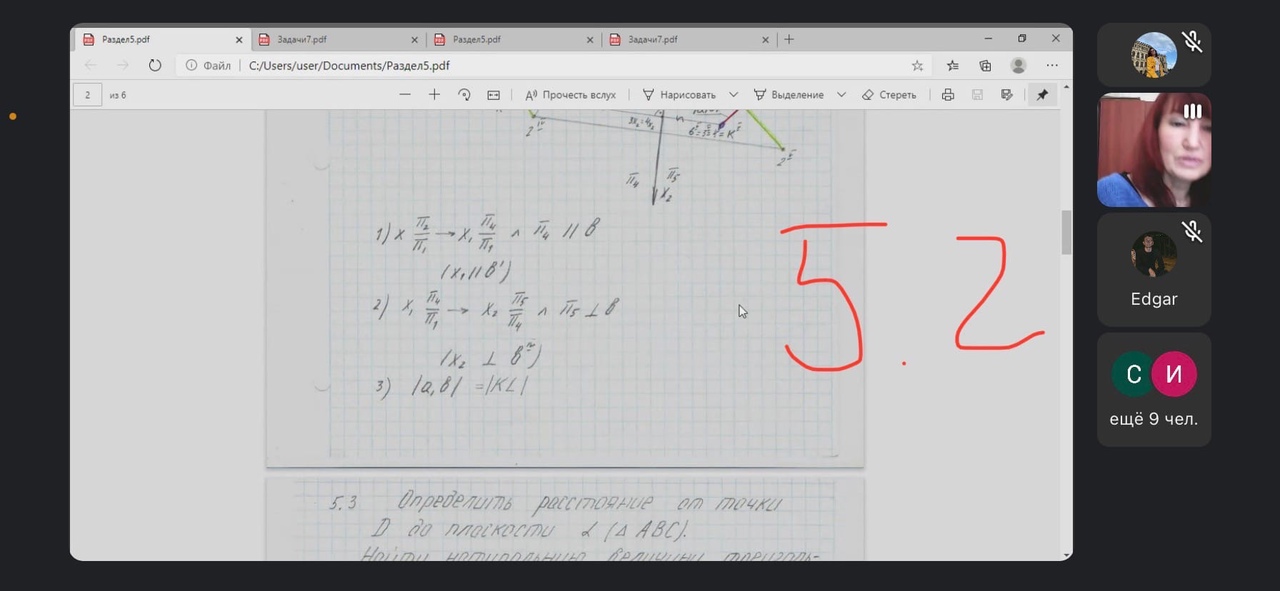 Раздел5.pdf
Задачи7.pdf
Раздел5.pdf
Задачи7.pdf
Файл C:/Users/user/Documents/Раздел5.pdf
2 из 6
Прочесть вслух
Нарисовать
Выделение
Стереть
2
π4 π5
x2
1) x π2/π1 → x1 π4/π1 ∧ π4 // в
(x1 // в')
2) x1 π4/π1 → x2 π5/π4 ∧ π5 ⊥ в
(x2 ⊥ в IV)
3) |a,в| = |KL|
5.2
5.3 Определить расстояние от точки
D до плоскости α (△ ABC).
Найти натуральную величину треуголь-
Edgar
С И
ещё 9 чел.